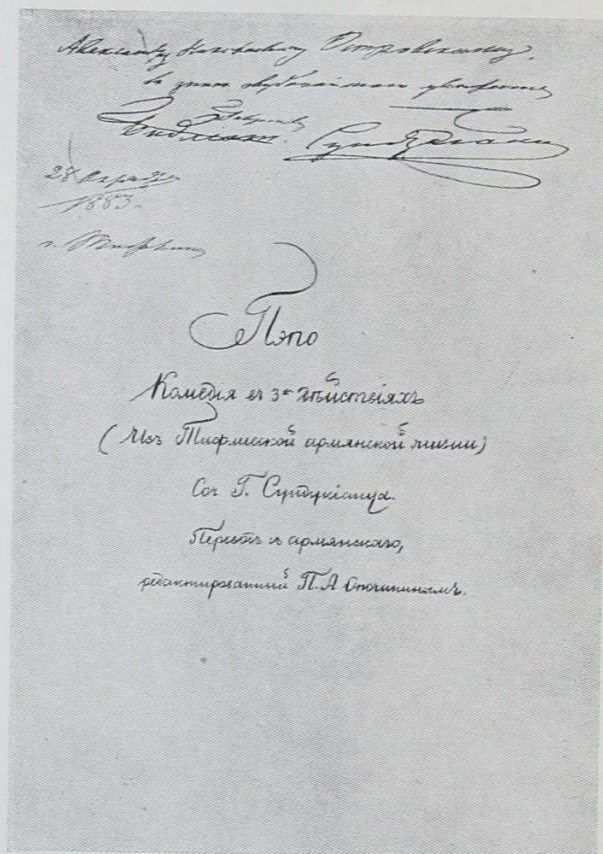 Александру Николаевичу Островскому,
въ знакъ глубочайшаго уваженія
Габріелъ Сундукіанцъ
28 Октября
1883.
г. Тифлисъ
Пэпо
Комедія въ 3хъ дѣйствіяхъ
(Изъ Тифлисской армянской жизни)
Соч Г. Сундукіанца.
Перев. съ армянскаго,
редактированный П. А Опочининымъ.